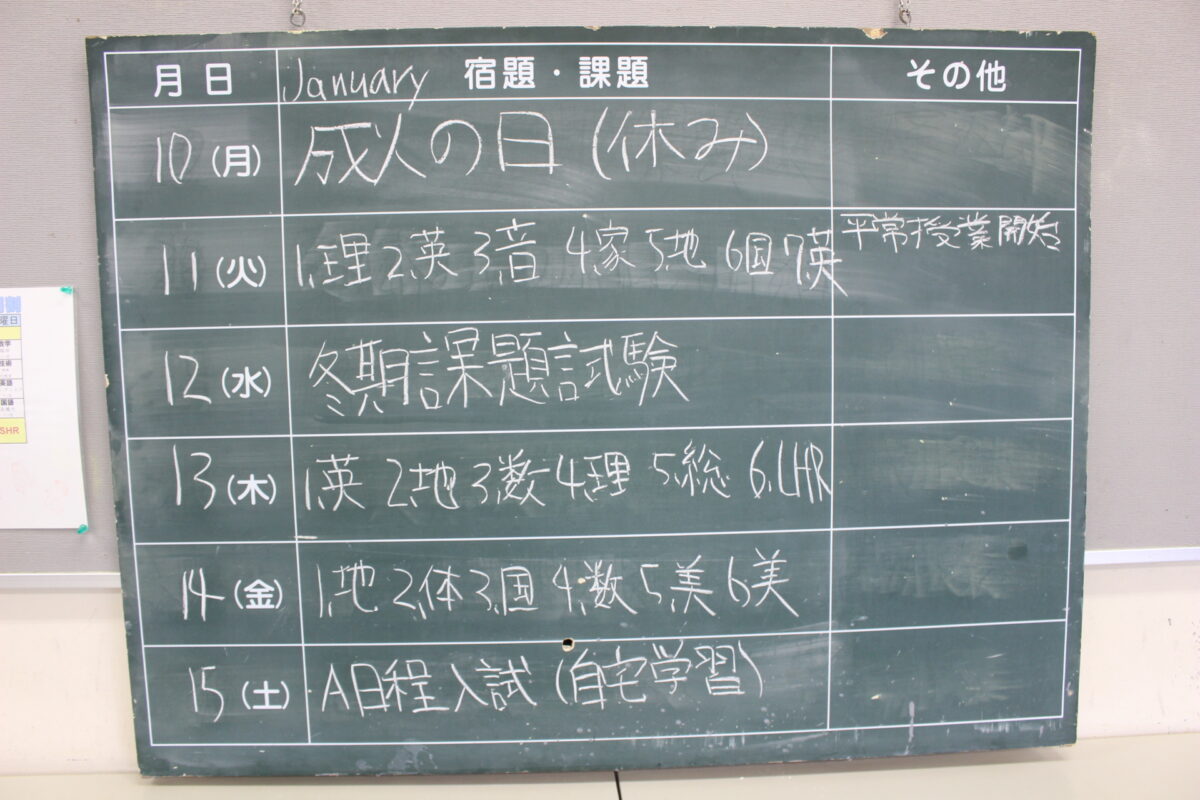 月 日 January 宿題・課題 その他
10 (月) 成人の日 (休み)
11 (火) 1.理 2.英 3.音 4.家 5.地 6.国 7.英 平常授業開始
12 (水) 冬期課題試験
13 (木) 1.英 2.地 3.数 4.理 5.総 6.LHR
14 (金) 1.地 2.体 3.国 4.数 5.美 6.美
15 (土) A日程入試 (自宅学習)
曜日
数学
技術
英語
国語
SHR